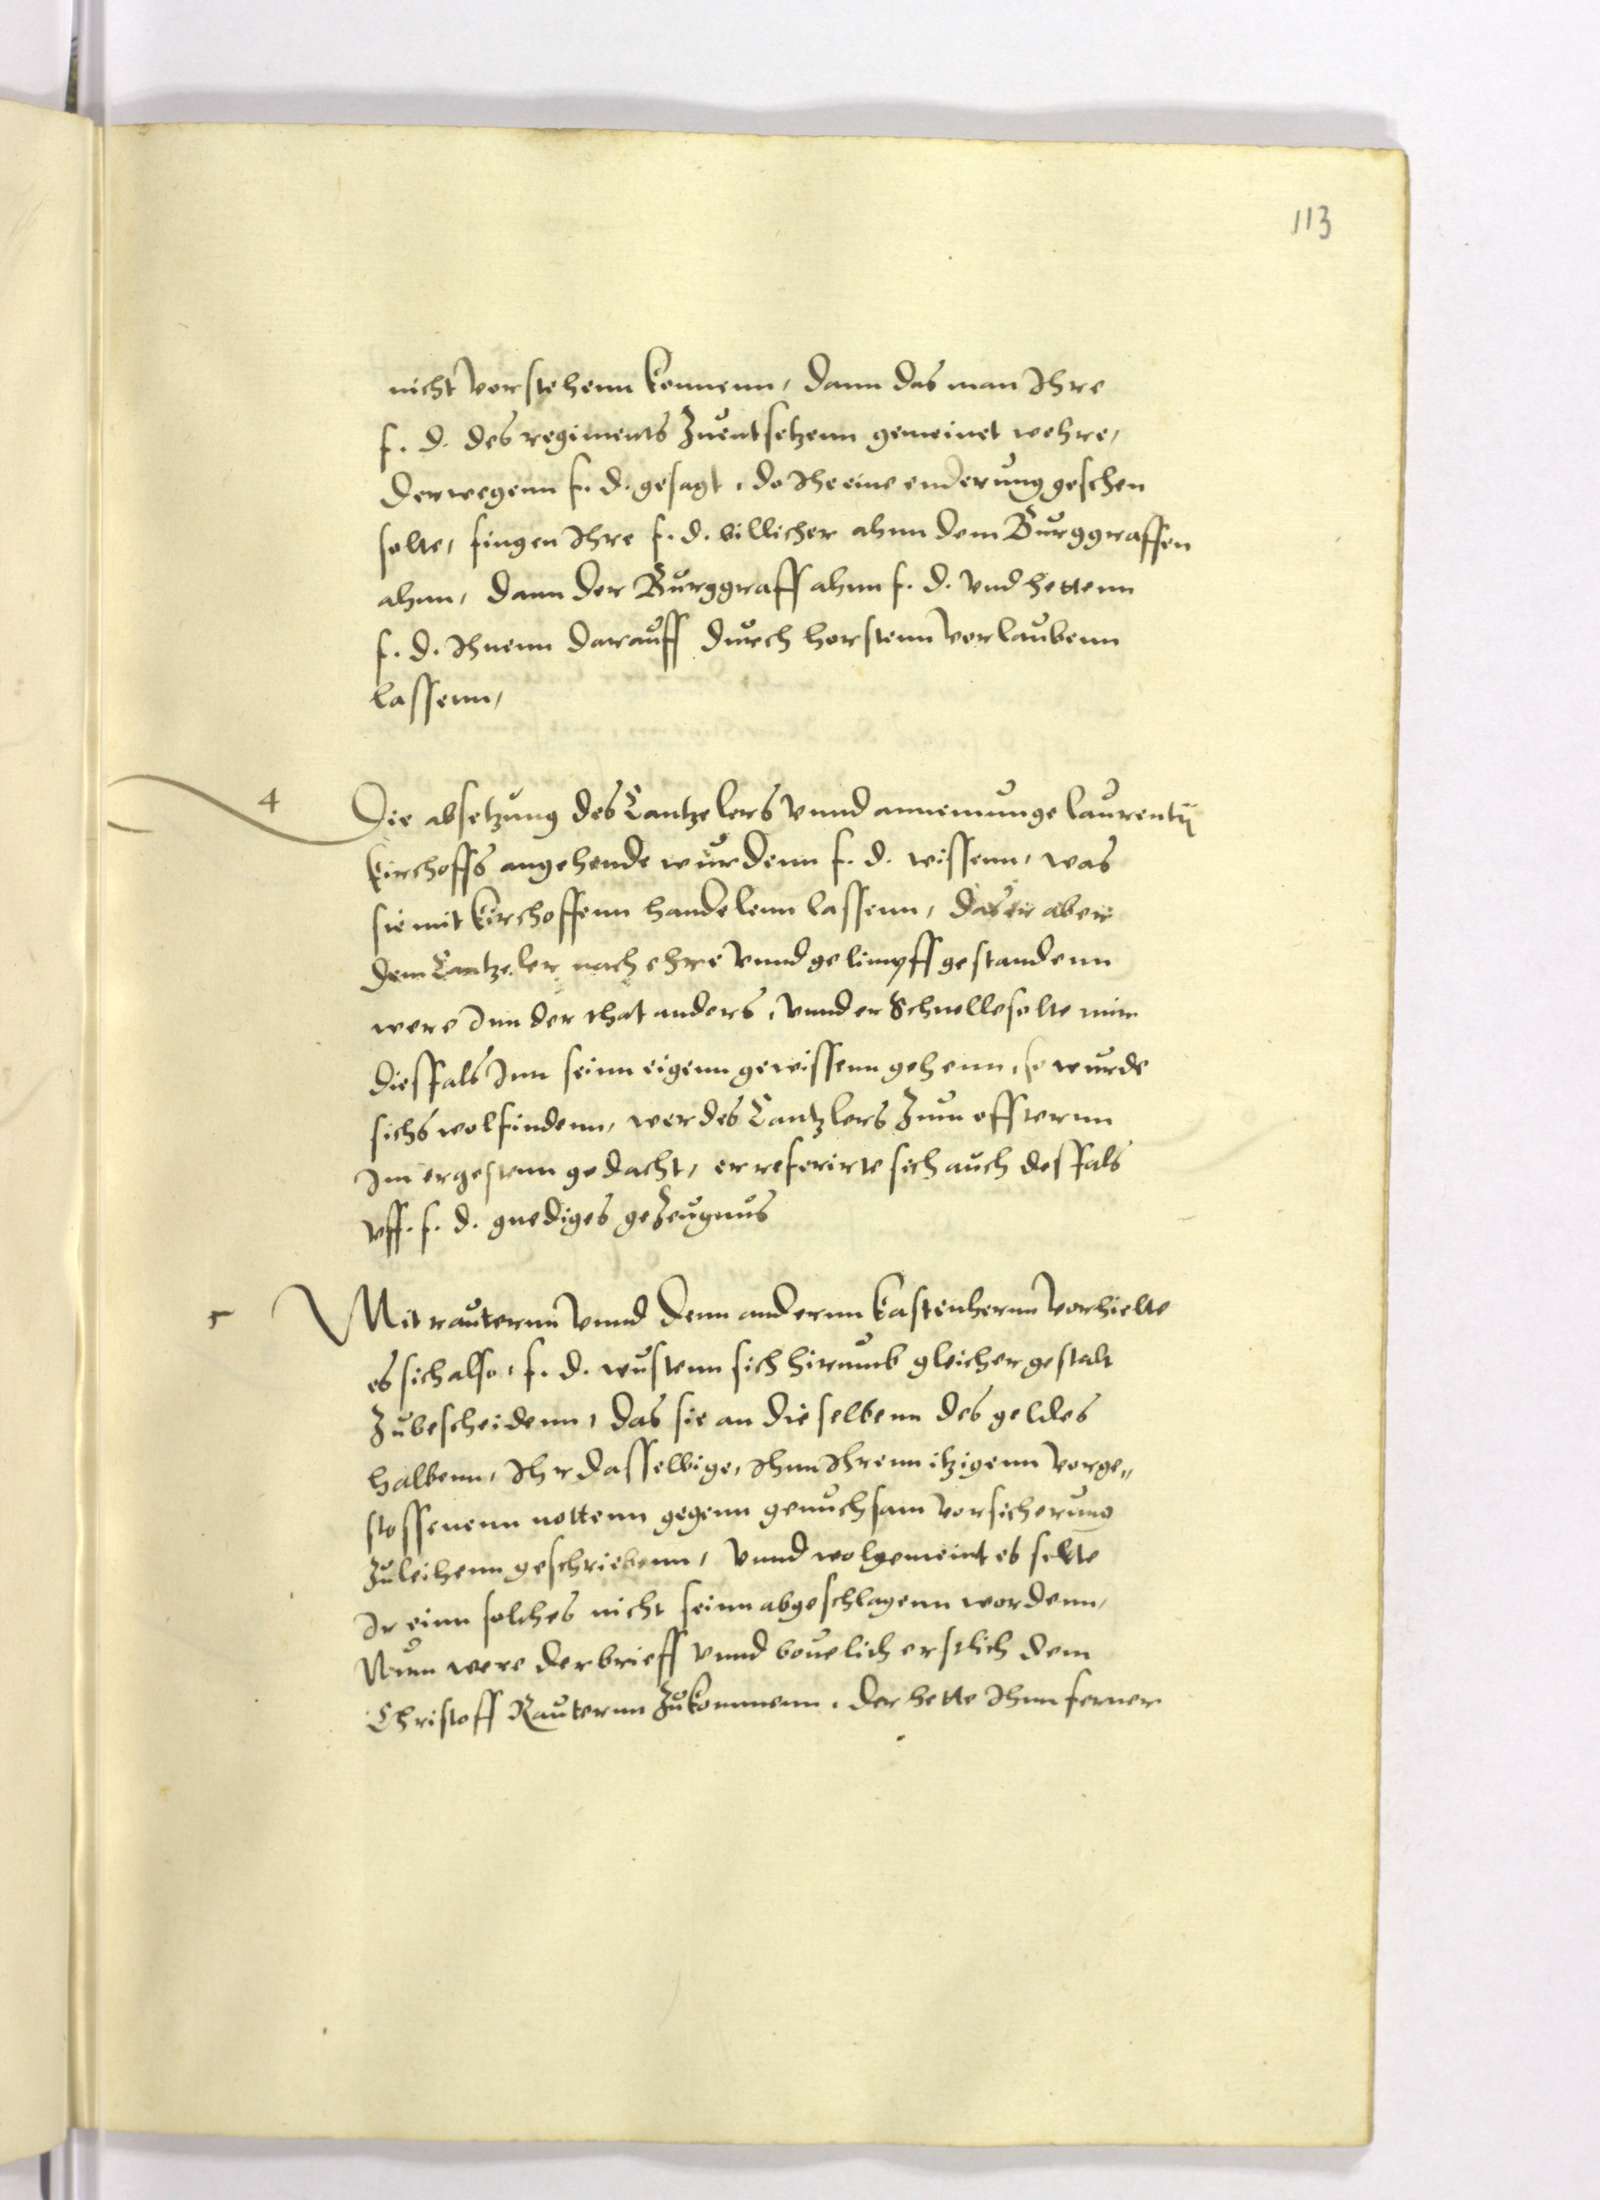 113
nicht vorstehenn konnenn, dann das man Ihre
f. d. des regiments Zuentsetzenn gemeinet wehre,
derwegenn f. d. gesagt, do Ihe eine enderung geschen
solte, fingen Ihre f. d. billicher ahnn dem Burggraffen
ahnn, dann der Burggraff ahnn f. d. vnd hettenn
f. d. Ihnenn darauff durch horstenn vorlaubenn
lassenn,
4 Die absetzung des Cantzelers vnnd annemunge laurentij
kirchoffs angehende wurdenn f. d. wissenn, was
sie mit kirchoffenn handelenn lassenn, das er aber
dem Cantzeler nach ehre vnnd gelimpff gestandenn
were Inn der that anders, vnnd er Schnelle solte nur
diesfals Inn seinn eigenn gewissenn gehenn, so wurde
sichs wol findenn, wer des Cantzlers Zum offternn
Im ergestenn gedacht, er referirte sich auch desfals
vff. f. d. gnediges geZeugnus
5 Mit rauternn vnnd denn andernn kastenhernn vorhielte
es sich also, f. d. wustenn sich hirumb gleicher gestalt
Zubescheidenn, das sie an die selbenn des geldes
halbenn, Ihr dasselbige, Ihnn Ihrenn itzigenn vorge„
stossenenn nottenn gegenn genuchsam vorsicherung
Zuleihenn geschriebenn, vnnd wolgemeint es solte
Ir einn solches nicht seinn abgeschlagenn wordenn,
Nun were der brieff vnnd bouelich erstlich dem
Christoff Rauternn Zukommenn, der hette Ihnn ferner